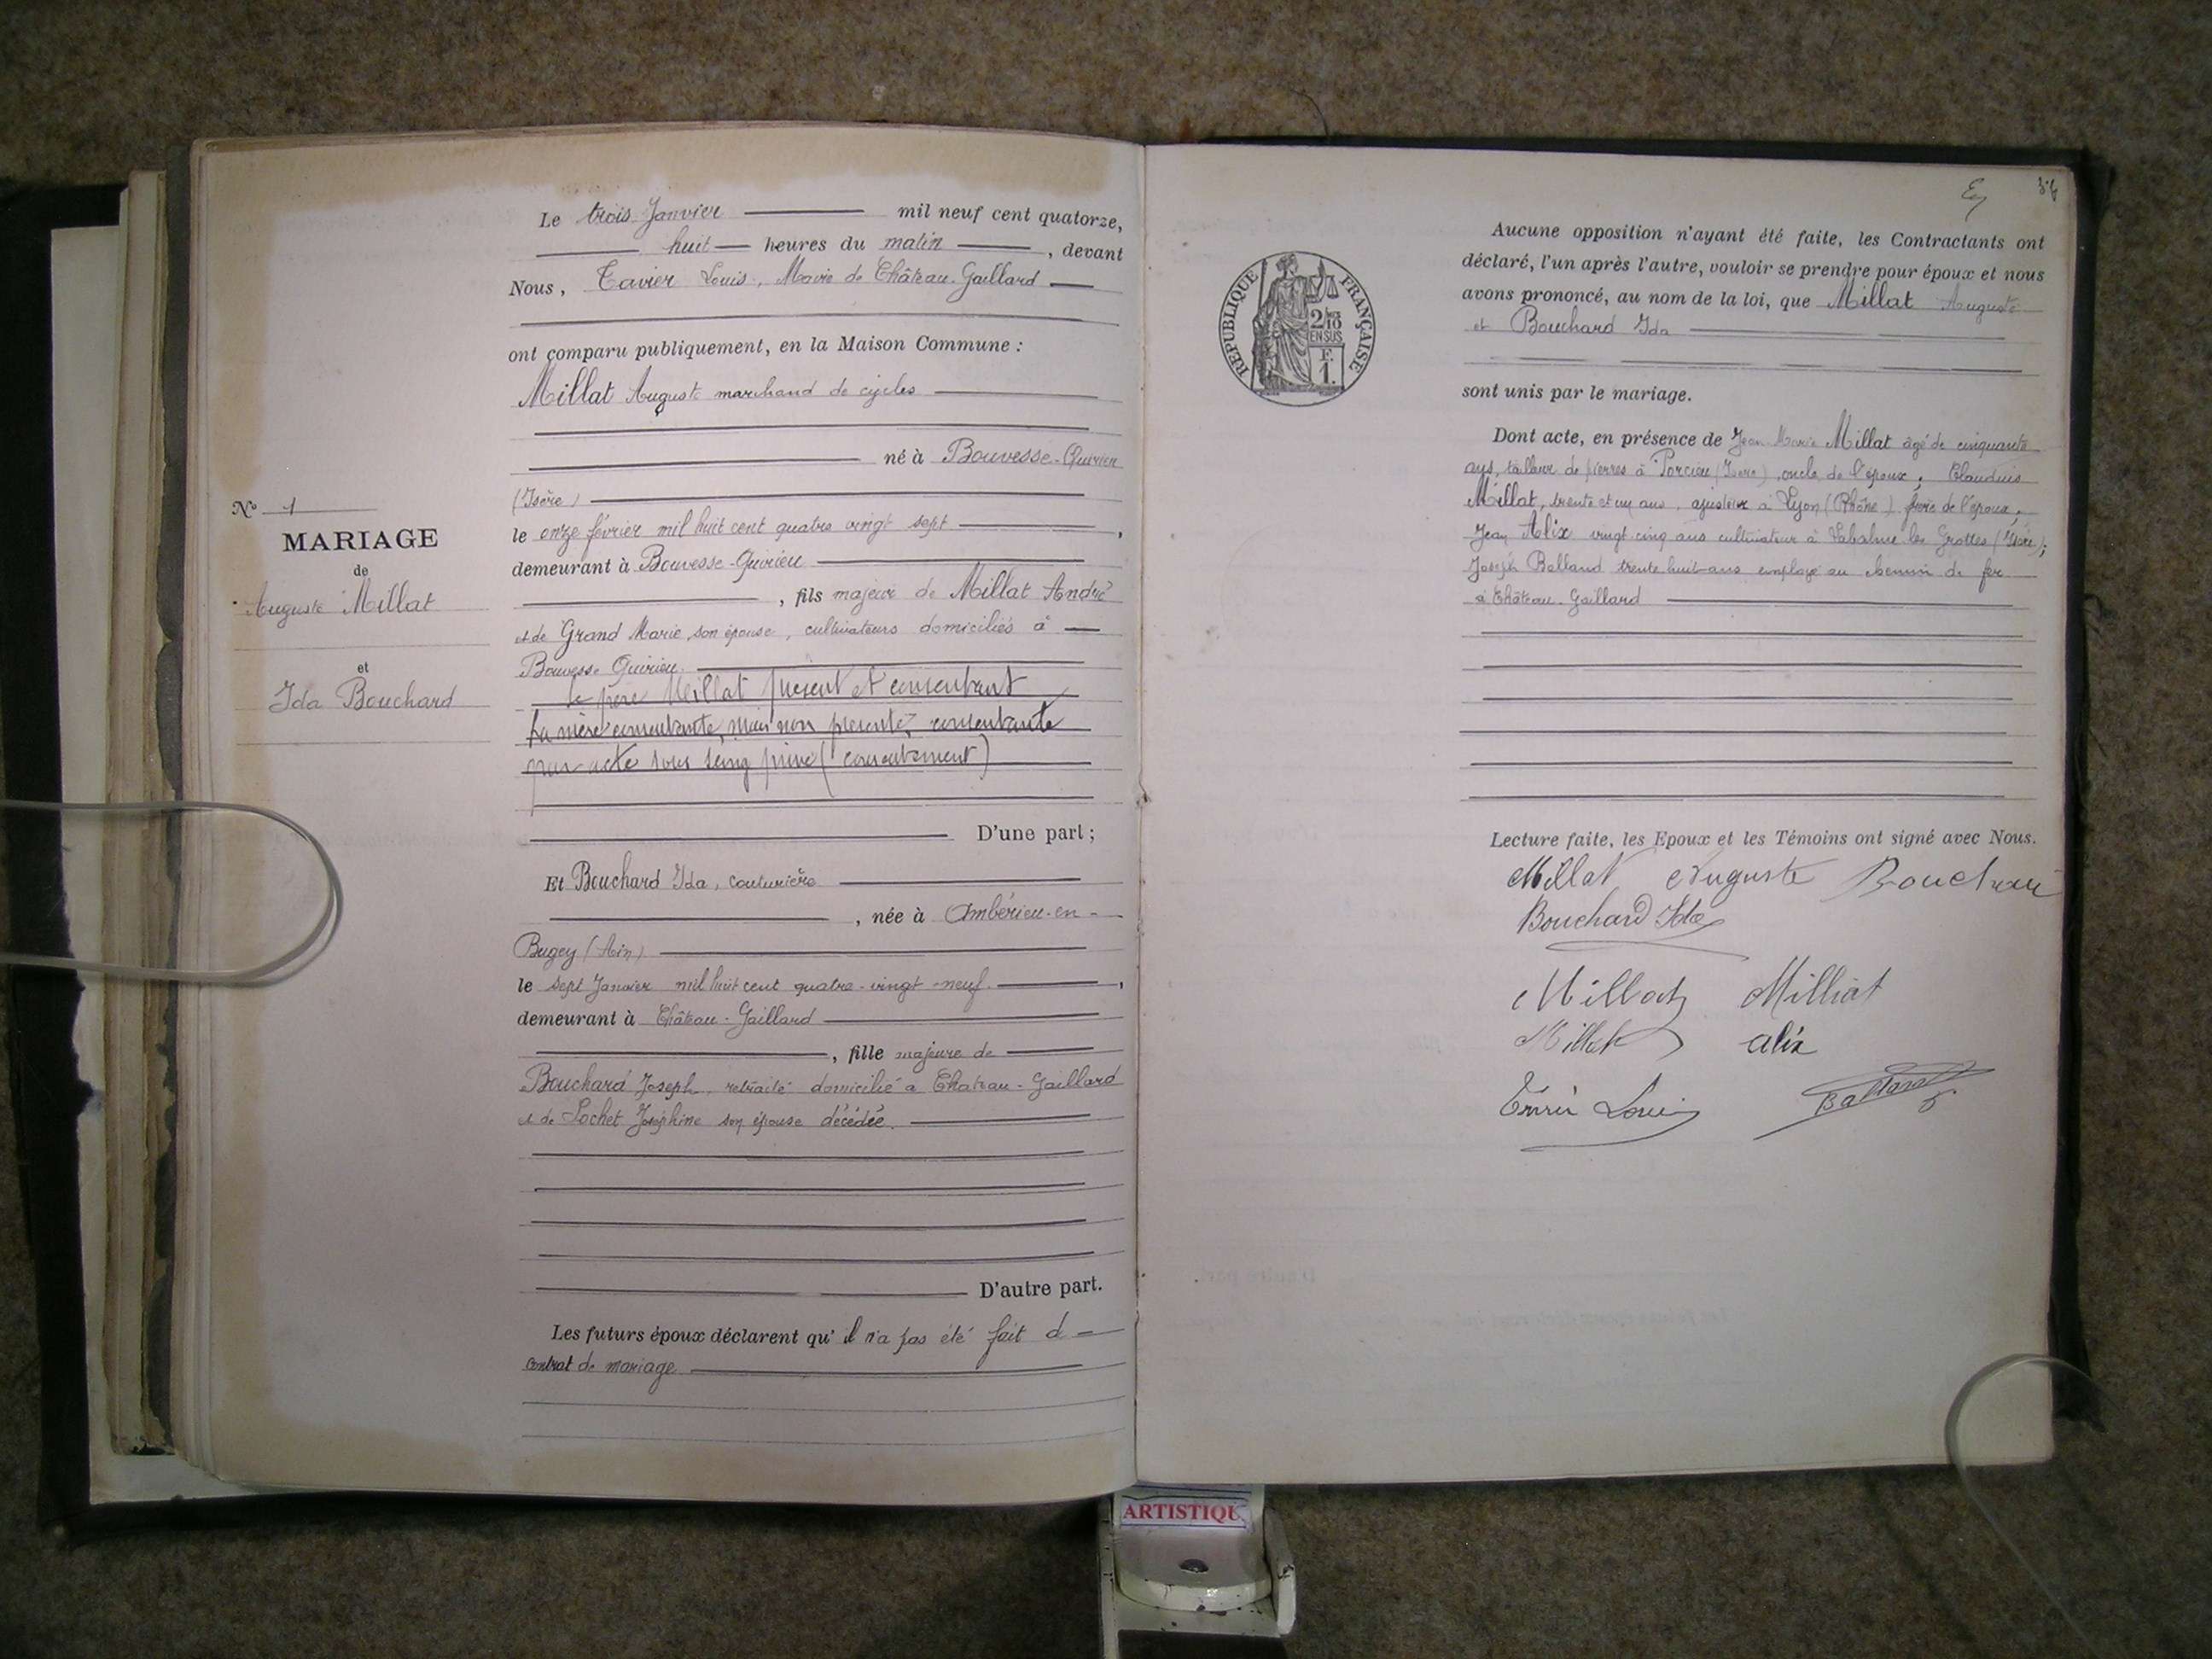 Le trois Janvier mil neuf cent quatorze,
huit heures du matin, devant
Nous, Tavier Louis, Maire de Château-Gaillard
ont comparu publiquement, en la Maison Commune :
Millat Auguste marchand de cycles
né à Bouvesse-Quirieu
(Isère)
le onze février mil huit cent quatre vingt sept,
demeurant à Bouvesse-Quirieu
, fils majeur de Millat André
et de Grand Marie, son épouse, cultivateurs domiciliés à
Bouvesse Quirieu.
le père Millat présent et consentant
la mère consentante, mais non présente, consentante
par acte sous seing privé (consentement)
D'une part ;
Et Bouchard Ida, couturière
, née à Ambérieu-en-
Bugey (Ain)
le sept Janvier mil huit cent quatre-vingt-neuf,
demeurant à Château-Gaillard
, fille majeure de
Bouchard Joseph, retraité domicilié à Château-Gaillard
et de Lochet Joséphine son épouse décédée.
D'autre part.
Les futurs époux déclarent qu'il n'a pas été fait d
contrat de mariage
N° 1
MARIAGE
de
Auguste Millat
et
Ida Bouchard
RÉPUBLIQUE FRANÇAISE
2/10
EN SUS
F.
1.
Aucune opposition n'ayant été faite, les Contractants ont
déclaré, l'un après l'autre, vouloir se prendre pour époux et nous
avons prononcé, au nom de la loi, que Millat Auguste
et Bouchard Ida
sont unis par le mariage.
Dont acte, en présence de Jean Marie Millat âgé de cinquante
ans, tailleur de pierres à Porcieu (Isère), oncle de l'époux ; Claudius
Millat, trente et un ans, ajusteur à Lyon (Rhône) frère de l'époux ;
Jean Alix vingt cinq ans cultivateur à Labalme les Grottes (Isère) ;
Joseph Balland trente huit ans employé au chemin de fer
à Château-Gaillard
Lecture faite, les Epoux et les Témoins ont signé avec Nous.
Millat Auguste Bouchard
Bouchard Ida
Millat Milliat
Millat alix
Louis Balland
ARTISTIQU